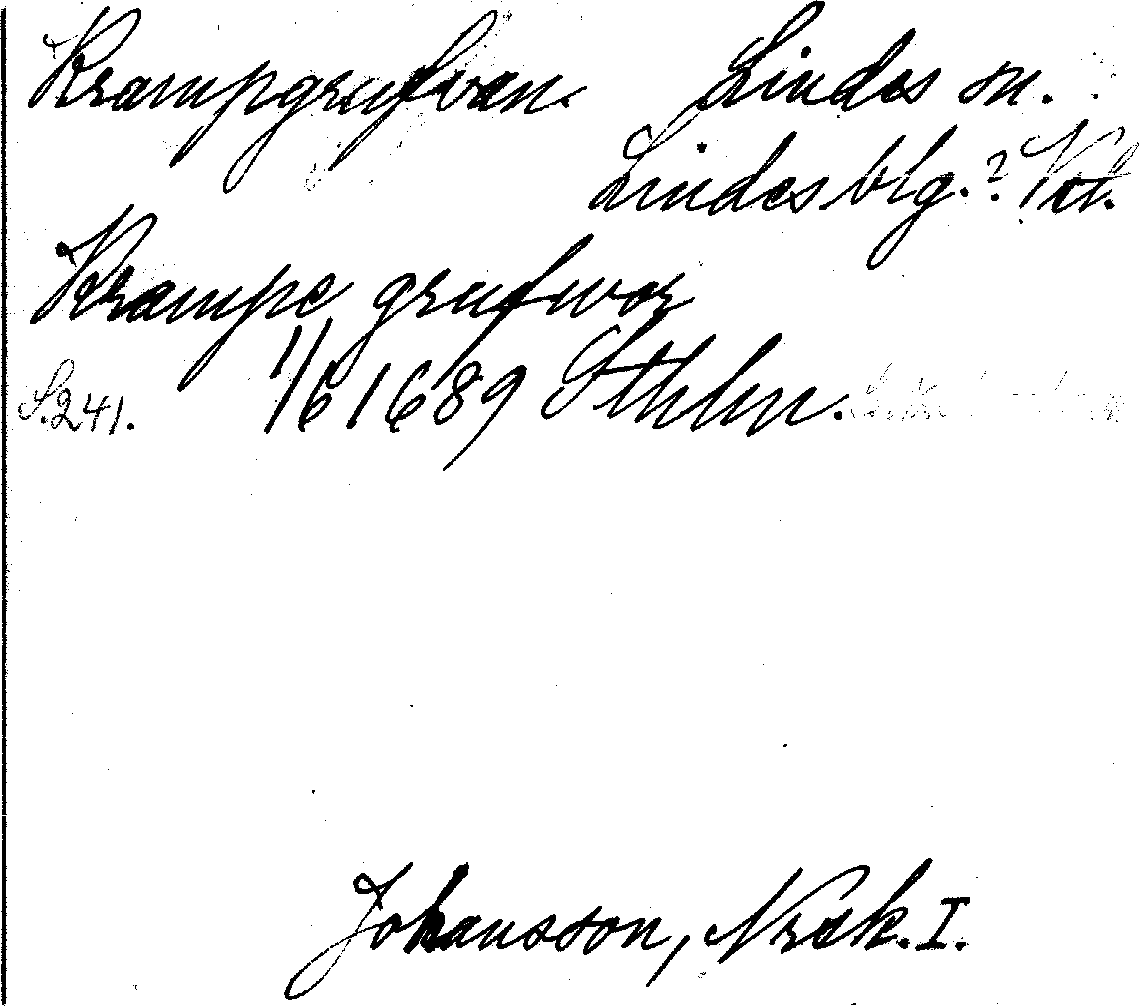 Krampgrufvan. Lindes sn.
Lindesblg.? Vstl.
Krampe grufwor
S. 241. 1/6 1689 Sthlm.
Johansson, Noråsk. I.